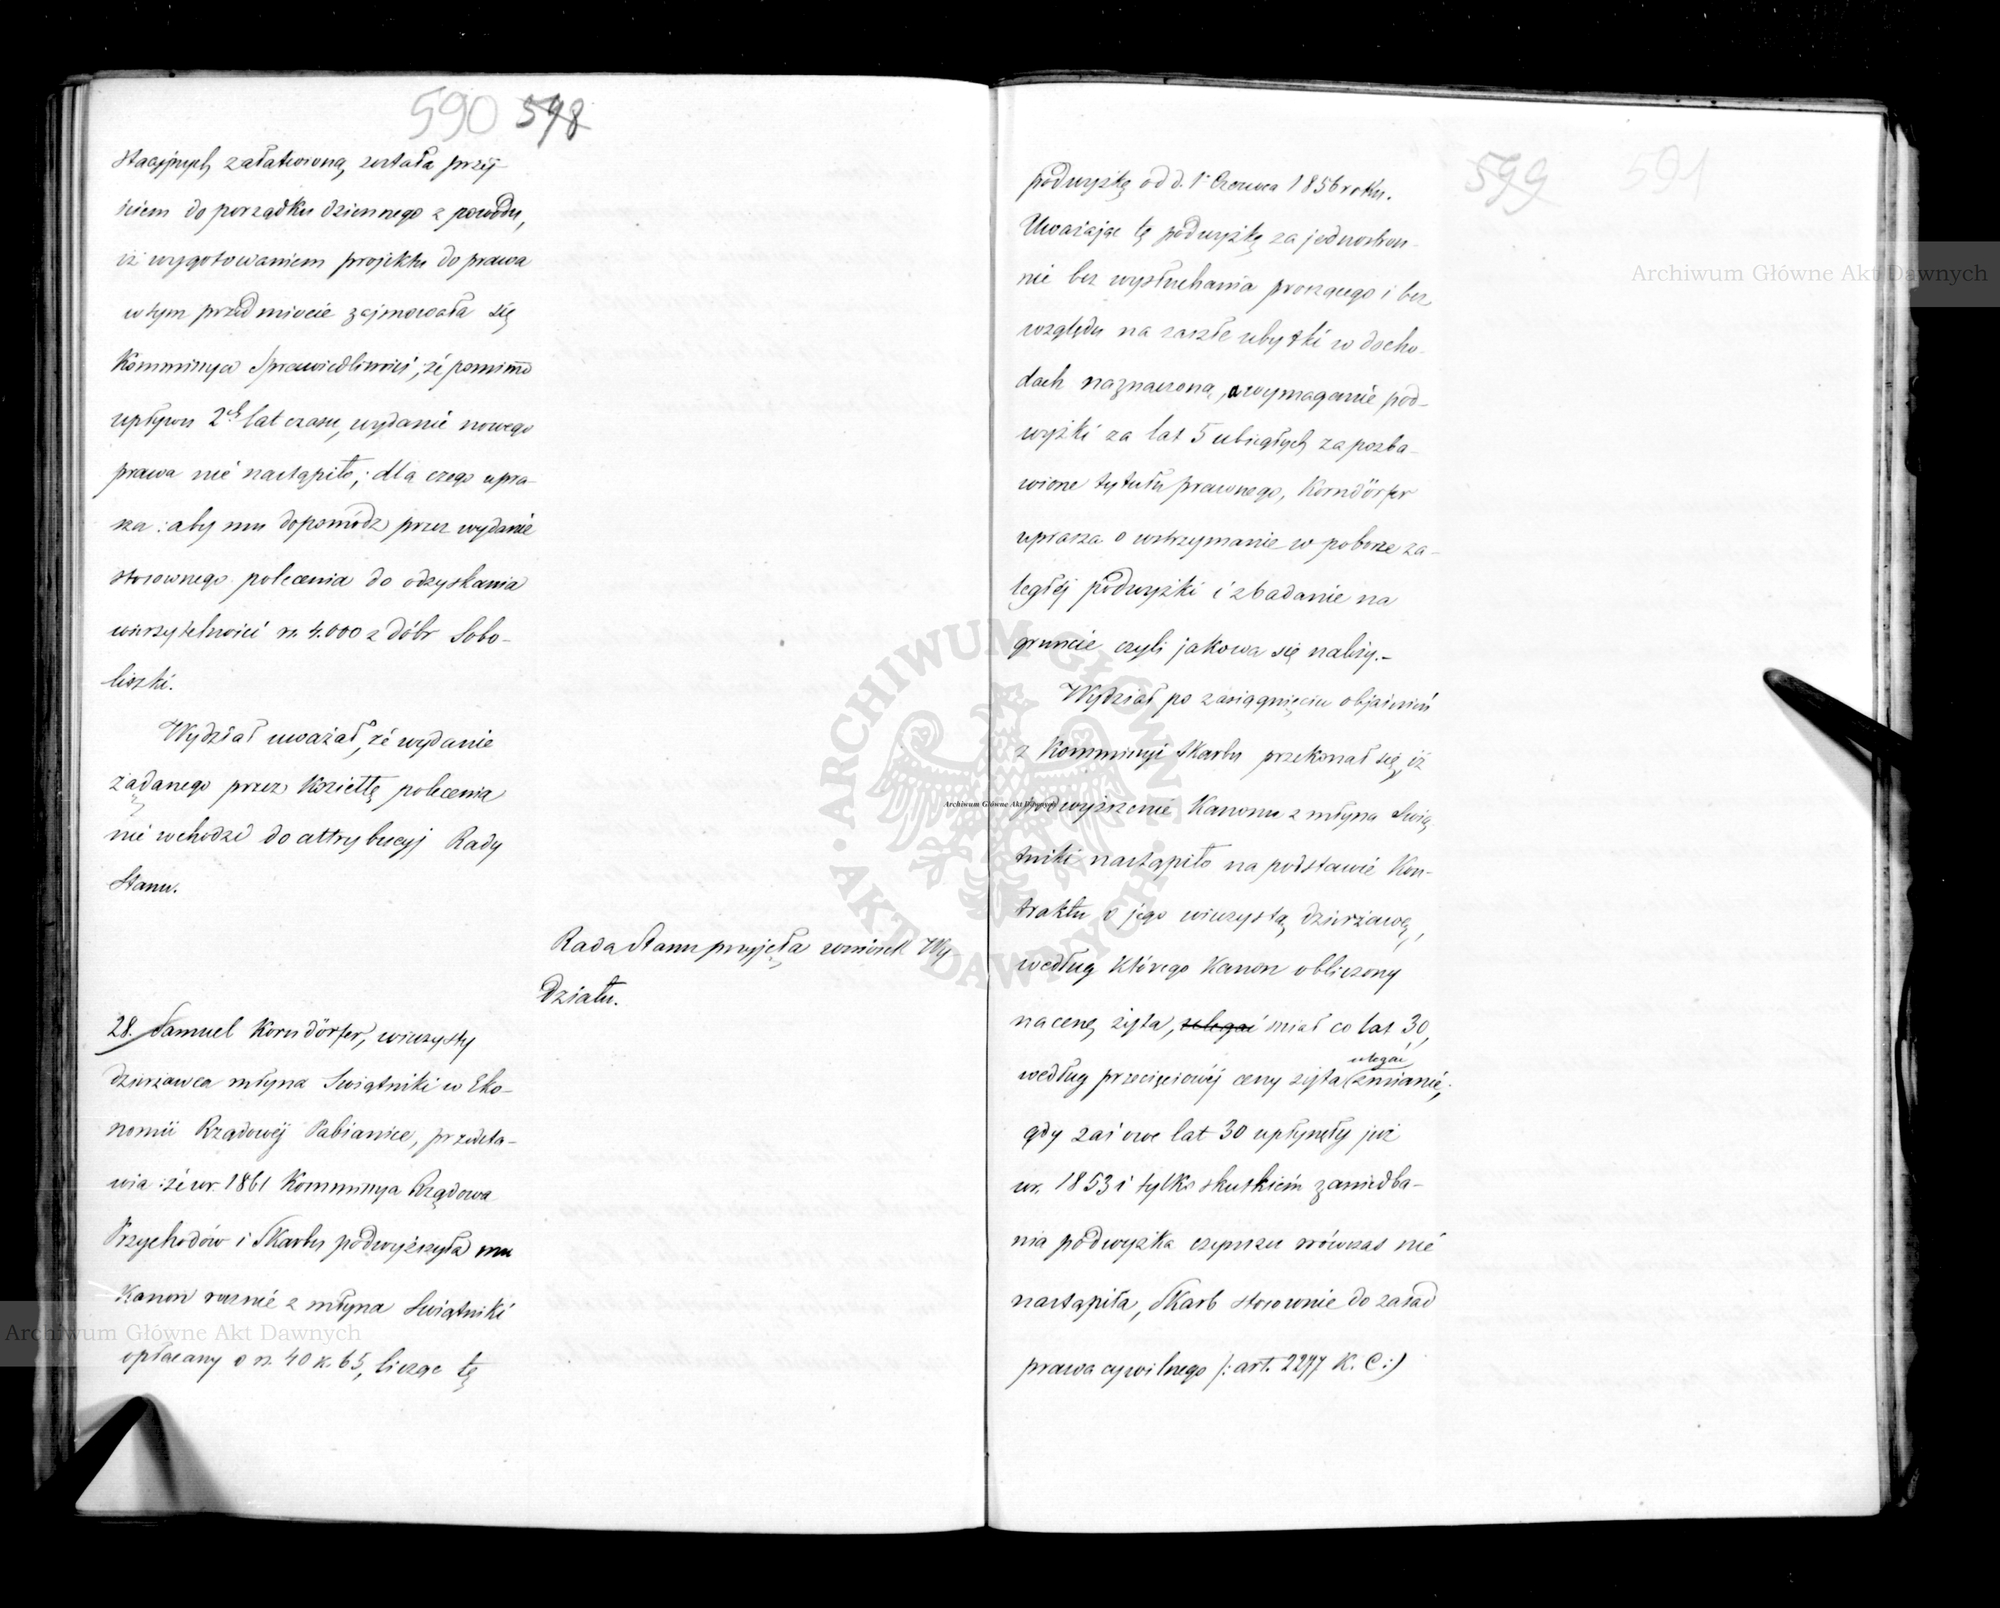 590 598
stacyjnych załatwioną została przéj-
ściem do porządku dziennego z powodu,
iż wygotowaniem projektu do prawa
w tym przedmiocie zajmowała się
Kommissya Sprawiedliwości; że pomimo
upływu 2ch lat czasu, wydanie nowego
prawa nie nastąpiło; dla czego upra-
sza: aby mu dopomódz przez wydanie
stosownego polecenia do odzyskania
wierzytelności rs. 4.000 z dóbr Sobo-
liszki.
Wydział uważał, że wydanie
żądanego przez Koziełłę polecenia
nie wchodzi do attrybucyj Rady
Stanu.
Rada Stanu przyjęła wniosek Wy-
działu.
28. Samuel Korndörfer, wieczysty
dzierżawca młyna Swiątniki w Eko-
nomii Rządowéj Pabianice, przedsta-
wia: że w r. 1861 Kommissya Rządowa
Przychodów i Skarbu podwyższyła mu
Kanon rocznie z młyna Swiątniki
opłacany o rs. 40 k. 65, licząc tę
599 591
podwyżkę od d. 1 Czerwca 1856 roku.
Uważając tę podwyżkę za jednostron-
nie bez wysłuchania proszącego i bez
względu na zaszłe ubytki w docho-
dach naznaczoną, a wymaganie pod-
wyżki za lat 5 ubiegłych za pozba-
wione tytułu prawnego, Korndörfer
uprasza o wstrzymanie w poborze za-
ległéj podwyżki i zbadanie na
gruncie czyli jakowa się należy.-
Wydział po zasiągnięciu objaśnień
z Kommissyi Skarbu przekonał się, iż
podwyższenie Kanonu z młyna Swią-
tniki nastąpiło na podstawie Kon-
traktu o jego wieczystą dzierżawę,
według którego Kanon obliczony
na cenę żyta, ulegać miał co lat 30,
według przecięciowéj ceny żyta ulegać zmianie;
gdy zaś owe lat 30 upłynęły już
w r. 1853 i tylko skutkiem zaniedba-
nia podwyżka czynszu wówczas nie
nastąpiła, Skarb stosownie do zasad
prawa cywilnego (: art. 2277 K. C:)
Archiwum Główne Akt Dawnych
Archiwum Główne Akt Dawnych
Archiwum Główne Akt Dawnych
ARCHIWUM GŁÓWNE AKT DAWNYCH